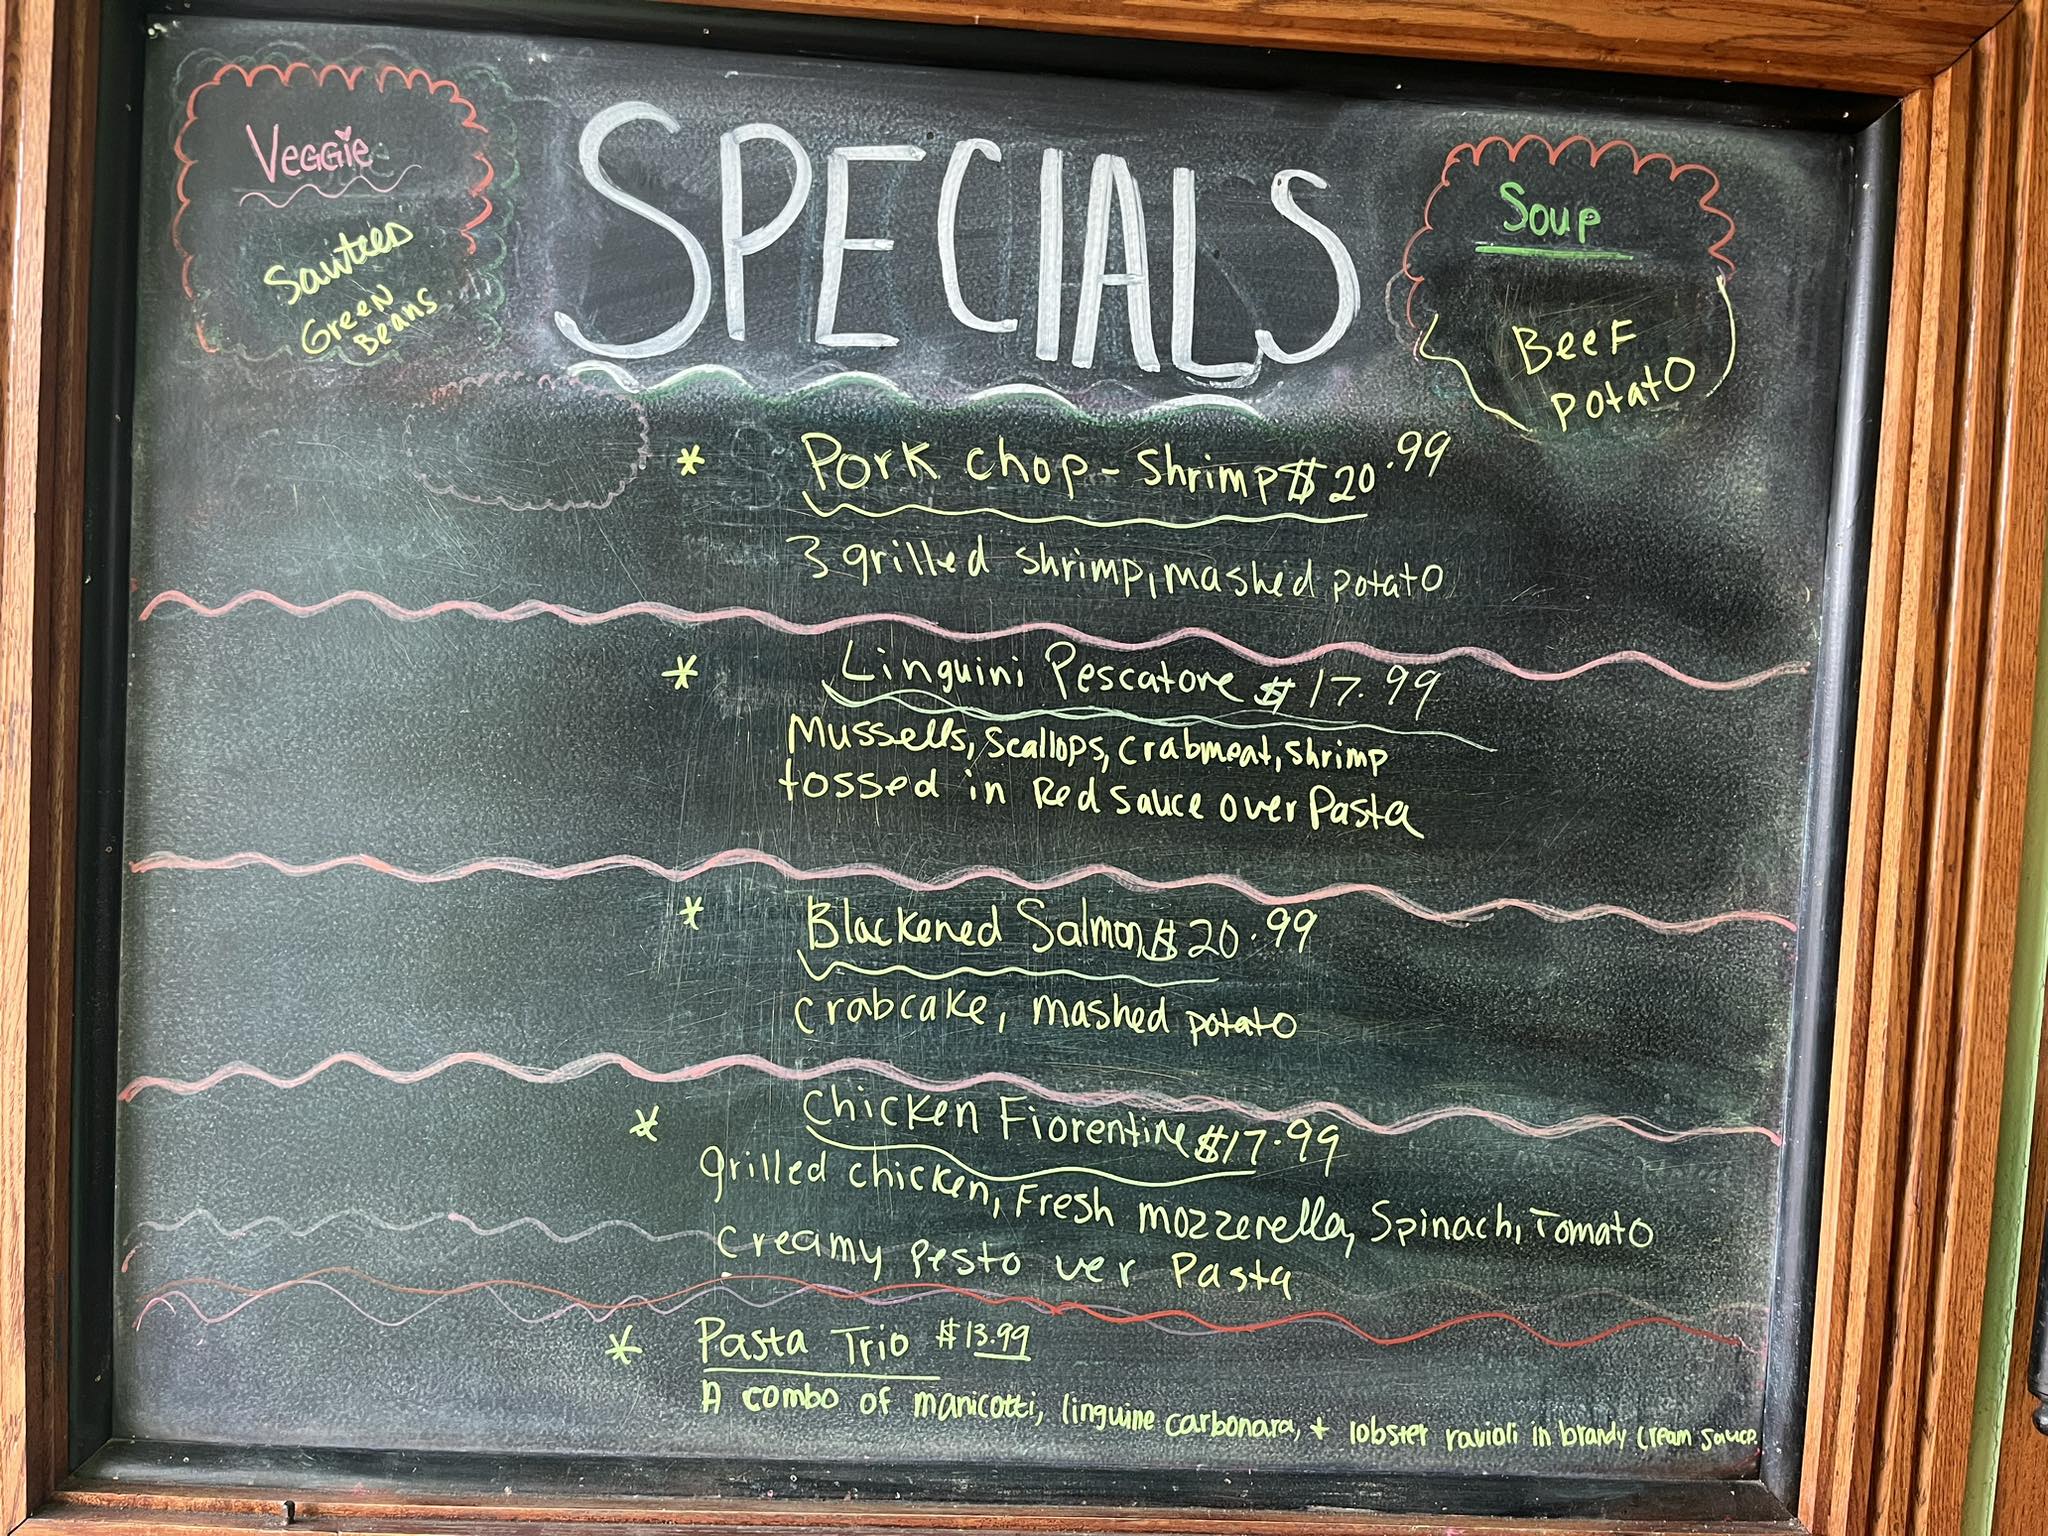 SPECIALS
Veggie
Sauteed
Green
Beans
Soup
Beef
Potato
* Pork chop - Shrimp $20.99
3 grilled shrimp, mashed potato
* Linguini Pescatore $17.99
Mussells, Scallops, crabmeat, shrimp
tossed in Red Sauce over Pasta
* Blackened Salmon $20.99
crabcake, mashed potato
* Chicken Fiorentine $17.99
grilled chicken, Fresh mozzerella, Spinach, Tomato
Creamy pesto ver Pasta
* Pasta Trio $13.99
A combo of manicotti, linguine carbonara, + lobster ravioli in brandy cream sauce.